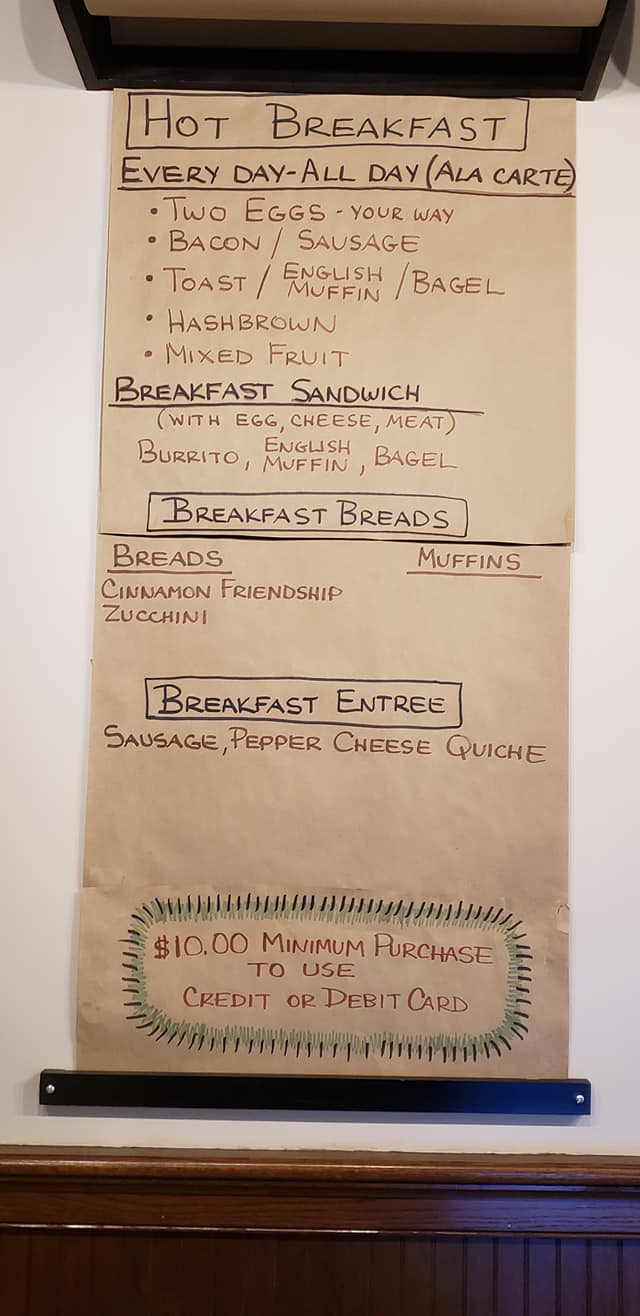 HOT BREAKFAST
EVERY DAY-ALL DAY (ALA CARTE)
• TWO EGGS - YOUR WAY
• BACON / SAUSAGE
• TOAST / ENGLISH MUFFIN / BAGEL
• HASHBROWN
• MIXED FRUIT
BREAKFAST SANDWICH
(WITH EGG, CHEESE, MEAT)
BURRITO, ENGLISH MUFFIN, BAGEL
BREAKFAST BREADS
BREADS MUFFINS
CINNAMON FRIENDSHIP
ZUCCHINI
BREAKFAST ENTREE
SAUSAGE, PEPPER CHEESE QUICHE
$10.00 MINIMUM PURCHASE
TO USE
CREDIT OR DEBIT CARD